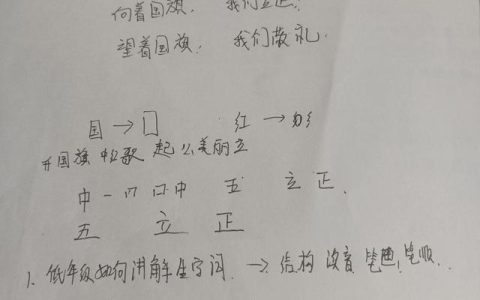 向着国旗，我们立正；
望着国旗，我们敬礼。
国→囗 红→纟
五国旗 歌 起 么美丽立
中一冂口中 五 立正、
五 立 正
1、低年级如何讲解生字词→结构 读音 笔画、笔顺、